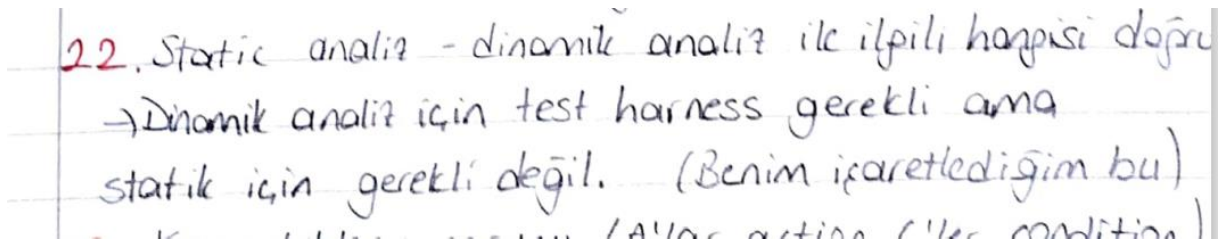 22. Static analiz - dinamik analiz ile ilgili hangisi doğru
→Dinamik analiz için test harness gerekli ama
statik için gerekli değil. (Benim işaretlediğim bu)
action condition)